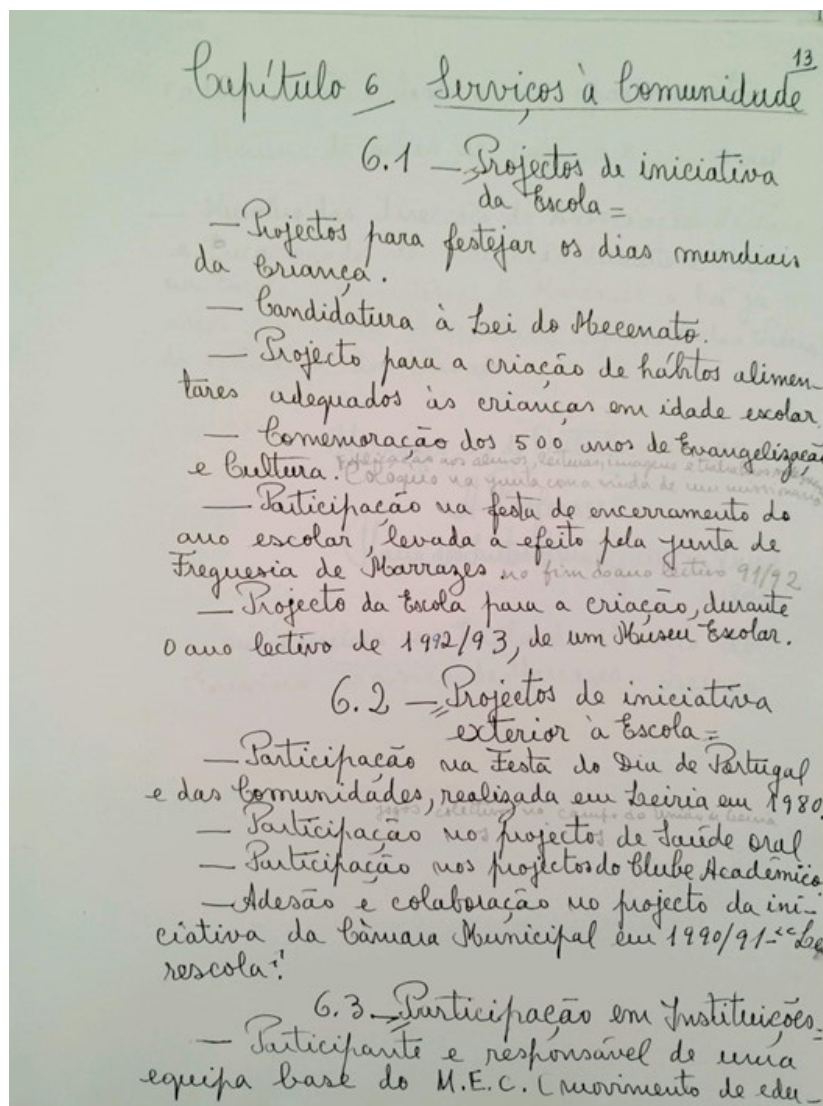 13
Capítulo 6 Serviços à Comunidade
6.1 — Projectos de iniciativa
da Escola =
— Projectos para festejar os dias mundiais
da Criança.
— Candidatura à Lei do Mecenato.
— Projecto para a criação de hábitos alimen-
tares adequados às crianças em idade escolar.
— Comemoração dos 500 anos de Evangelização
e Cultura. aos alunos, leituras, imagens e
Colóquio na junta com a vinda de um missionário
— Participação na festa de encerramento do
ano escolar, levada a efeito pela junta de
Freguesia de Marrazes. no fim do ano lectivo 91/92
— Projecto da Escola para a criação, durante
o ano lectivo de 1992/93, de um Museu Escolar.
6.2 — Projectos de iniciativa
exterior à Escola =
— Participação na Festa do Dia de Portugal
e das Comunidades, realizada em Leiria em 1980.
jogos colectivos no campo da União de Leiria
— Participação nos projectos de Saúde oral
— Participação nos projectos do Clube Académico
— Adesão e colaboração no projecto da ini-
ciativa da Câmara Municipal em 1990/91 - "Le
rescola".
6.3 — Participação em Instituições =
— Participante e responsável de uma
equipa base do M.E.C. (movimento de edu-